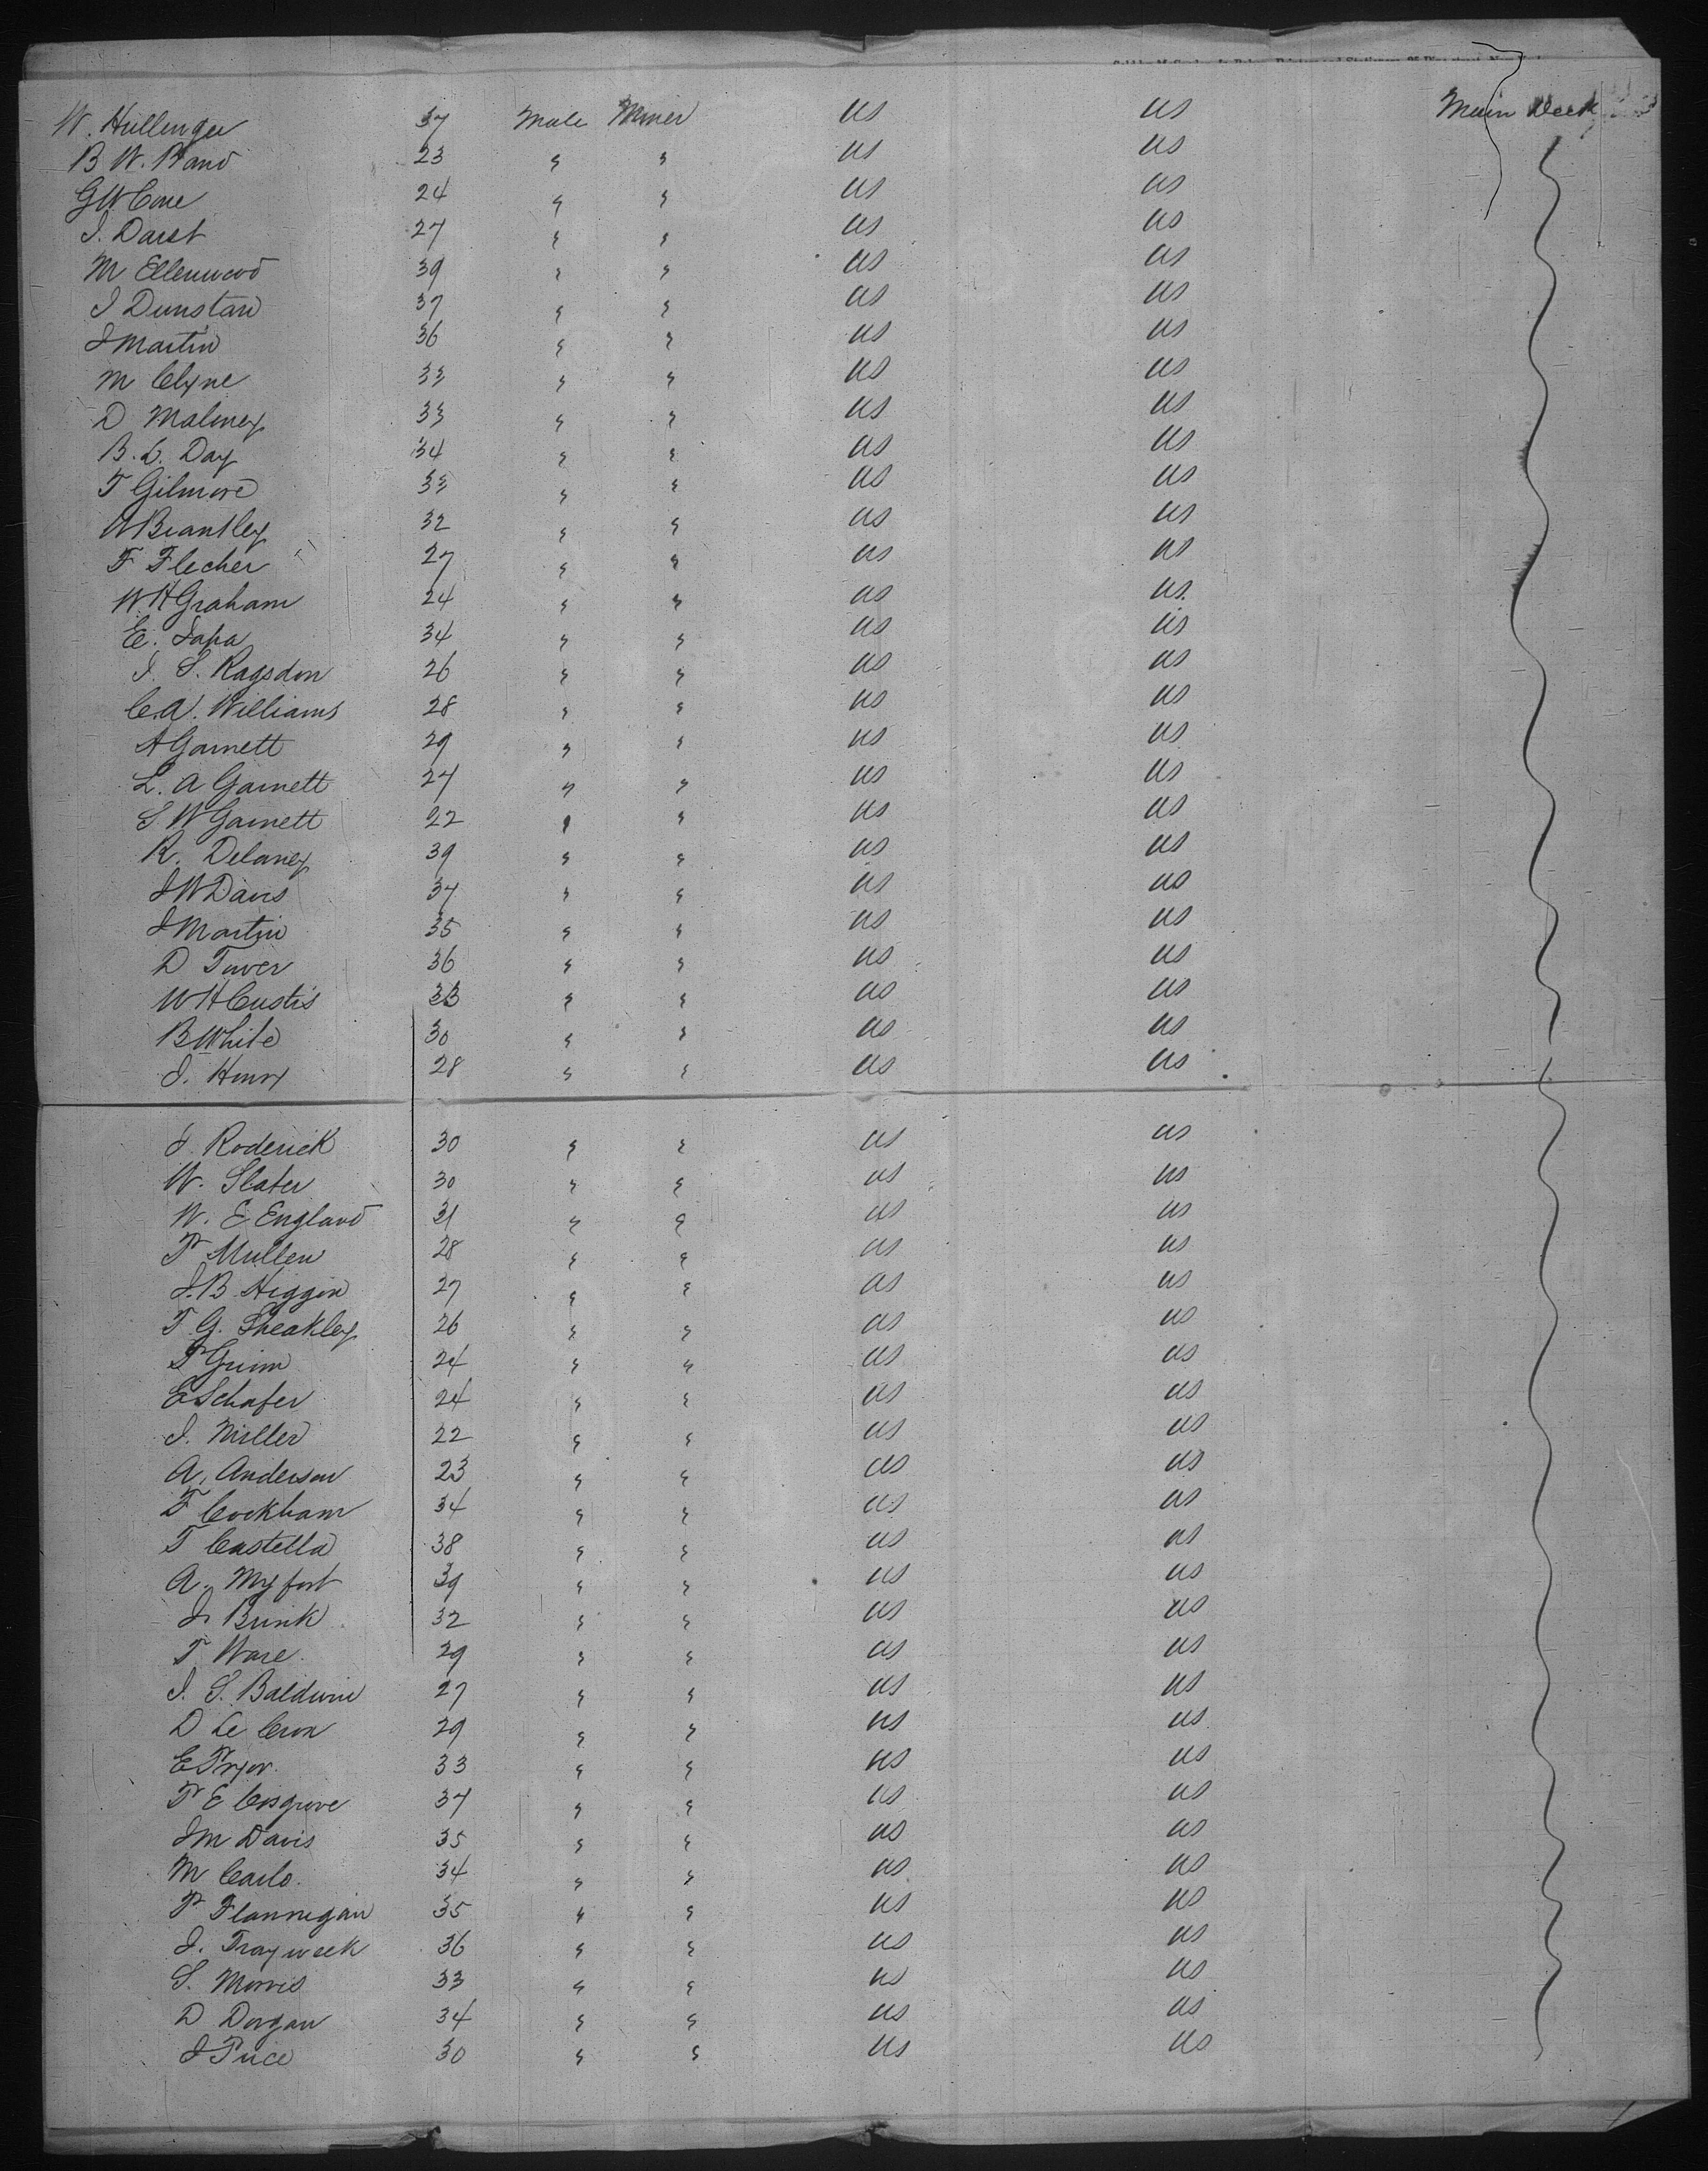 W. Hullenger 37 Male Miner US US Main Deck
B W. Rand 23 " " US US
G W Cone 24 " " US US
J. Darst 27 " " US US
M Ellenwood 39 " " US US
J Dunstan 37 " " US US
J Martin 36 " " US US
M Clyne 33 " " US US
D Maloney 33 " " US US
B. L. Day 34 " " US US
T Gilmore 33 " " US US
A Brantley 32 " " US US
F Flecher 27 " " US US
W H Graham 24 " " US US
E. Sapa 34 " " US US
J. S. Ragsdon 26 " " US US
C. A. Williams 28 " " US US
A Garnett 29 " " US US
L. A Garnett 24 " " US US
S W Garnett 22 " " US US
R. Delaney 39 " " US US
J W Davis 37 " " US US
J Martin 35 " " US US
D Tower 36 " " US US
W H Custis 33 " " US US
B White 30 " " US US
J. Henry 28 " " US US
J. Roderick 30 " " US US
W. Slater 30 " " US US
W. E England 31 " " US US
P Mullen 28 " " US US
J. B Higgin 27 " " US US
T G. Sheakley 26 " " US US
P Grim 24 " " US US
E Schafer 24 " " US US
J. Miller 22 " " US US
A. Anderson 23 " " US US
F Cockham 34 " " US US
T Castella 38 " " US US
A. Myfort 39 " " US US
J. Brink 32 " " US US
T. Ware 29 " " US US
J. S. Baldwin 27 " " US US
D Le Cron 29 " " US US
E Pryor 33 " " US US
P E Cosgrove 37 " " US US
J M Davis 35 " " US US
M Carlo. 34 " " US US
P Flannegan 35 " " US US
J. Trayweek 36 " " US US
S. Morris 33 " " US US
D Dorgan 34 " " US US
J Price 30 " " US US